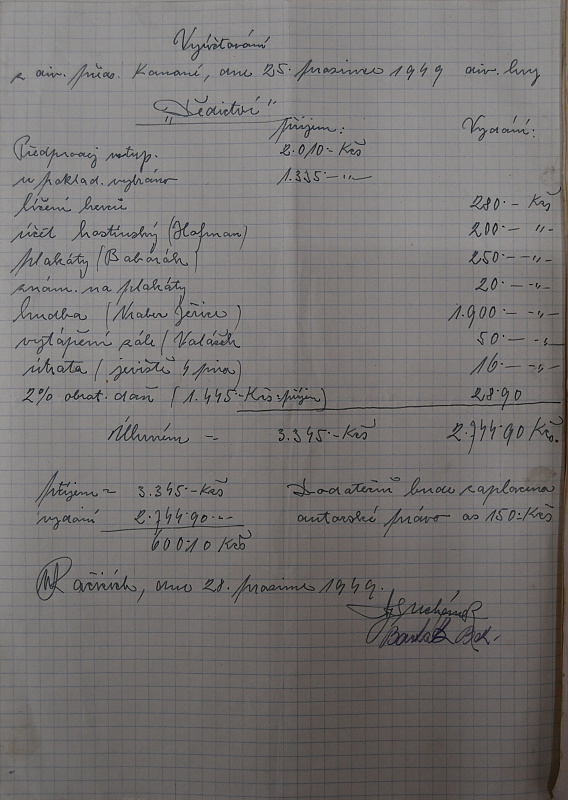 Vyúčtování
z div. před. Konané, dne 25. prosince 1949 div. hry
„Dědictví"
příjem: Vydání:
Předprodej vstup. 2.010·- Kčs
u poklad. vybráno 1.335·- „-
líčení herců 280·- Kčs
účet hostinský (Hofman) 200·- „-
plakáty (Baborák) 250·- „-
znám. na plakáty 20·- „-
hudba ( 1.900·- „-
vytápění sálu (Valášek 50·- „-
útrata ( jeviště 4 piva) 16·- „-
2% obrat. daň ( 1.445·- Kčs příjem) 28·90
Úhrnem - 3.345·- Kčs 2.744·90 Kčs.
příjem = 3.345·- Kčs
vydání 2.744·90 „-
600·10 Kčs
Dodatečně bude zaplaceno
autorské právo as 150·- Kčs
dne 28. prosince 1949.